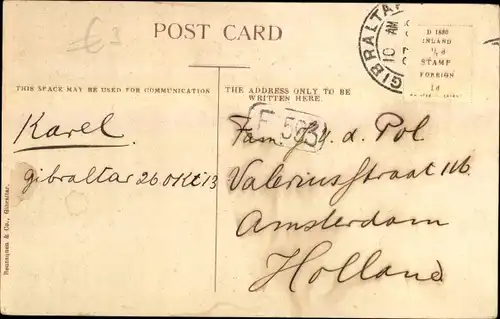 €3
POST CARD
GIBRALTAR
10 AM
D 1880
INLAND
½d
STAMP
FOREIGN
1d
THIS SPACE MAY BE USED FOR COMMUNICATION
THE ADDRESS ONLY TO BE
WRITTEN HERE.
Karel.
Gibraltar 26 Okt 13
F 563
Fam. v. d. Pol
Valeriusstraat 116
Amsterdam
Holland
Benzaquen & Co., Gibraltar.